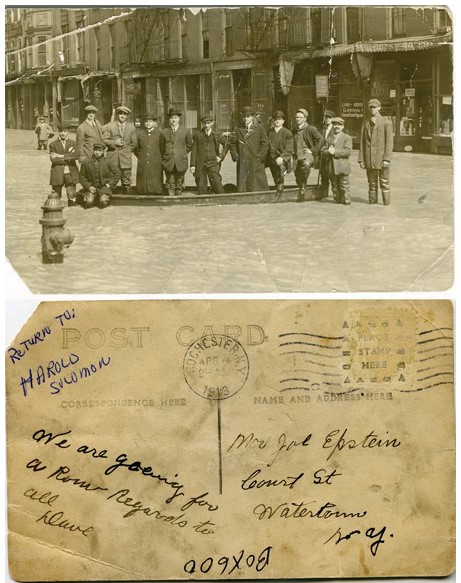 RETURN TO:
HAROLD
SOLOMON
POST CARD
ROCHESTER, N.Y.
APR
1913
PLACE
STAMP
HERE
CORRESPONDENCE HERE
NAME AND ADDRESS HERE
We are goeing for
a Row Regards to
all
Dave
Mr Joe Epstein
Court St
Watertown
N.Y.
BOX 600